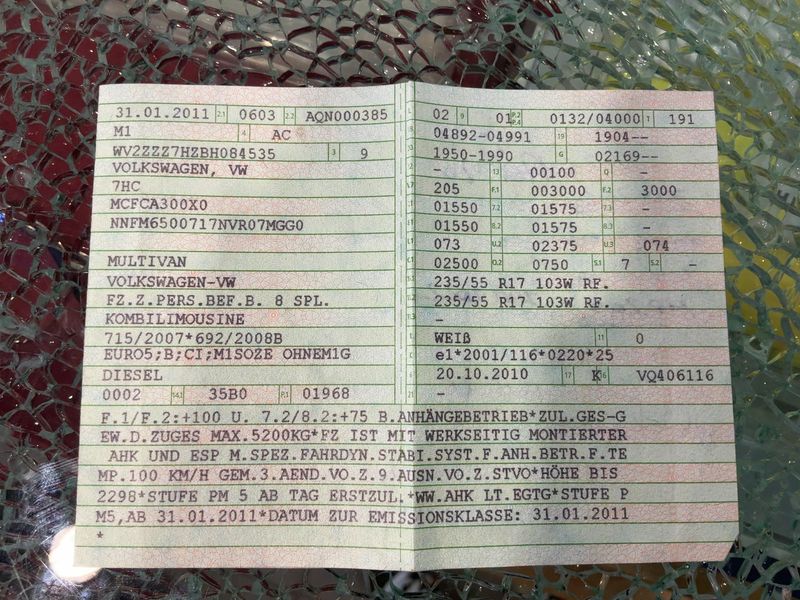 31.01.2011 2.1 0603 2.2 AQN000385
M1 4 AC
WV2ZZZ7HZBH084535 3 9
VOLKSWAGEN, VW
7HC
MCFCA300X0
NNFM6500717NVR07MGG0
MULTIVAN
VOLKSWAGEN-VW
FZ.Z.PERS.BEF.B. 8 SPL.
KOMBILIMOUSINE
715/2007*692/2008B
EURO5;B;CI;M1SOZE OHNEM1G
DIESEL
0002 14.1 35B0 P.1 01968
02 9 01 P.2 P.4 0132/04000 T 191
04892-04991 19 1904--
1950-1990 G 02169--
- 13 00100 Q -
205 F.1 003000 F.2 3000
01550 7.2 01575 7.3 -
01550 8.2 01575 8.3 -
073 U.2 02375 U.3 074
02500 O.2 0750 S.1 7 S.2 -
235/55 R17 103W RF.
235/55 R17 103W RF.
-
WEIß 11 0
e1*2001/116*0220*25
20.10.2010 17 K 16 VQ406116
21 -
F.1/F.2:+100 U. 7.2/8.2:+75 B.ANHÄNGEBETRIEB*ZUL.GES-G
EW.D.ZUGES MAX.5200KG*FZ IST MIT WERKSEITIG MONTIERTER
AHK UND ESP M.SPEZ.FAHRDYN.STABI.SYST.F.ANH.BETR.F.TE
MP.100 KM/H GEM.3.AEND.VO.Z.9.AUSN.VO.Z.STVO*HÖHE BIS
2298*STUFE PM 5 AB TAG ERSTZUL.*WW.AHK LT.EGTG*STUFE P
M5,AB 31.01.2011*DATUM ZUR EMISSIONSKLASSE: 31.01.2011
*